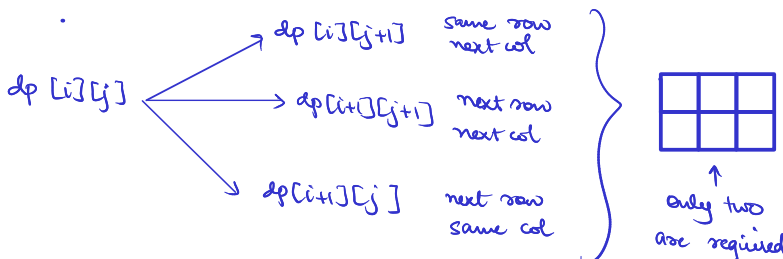 dp [i][j]
dp [i][j+1] same row
next col
dp[i+1][j+1] next row
next col
dp[i+1][j] next row
same col
only two
are required